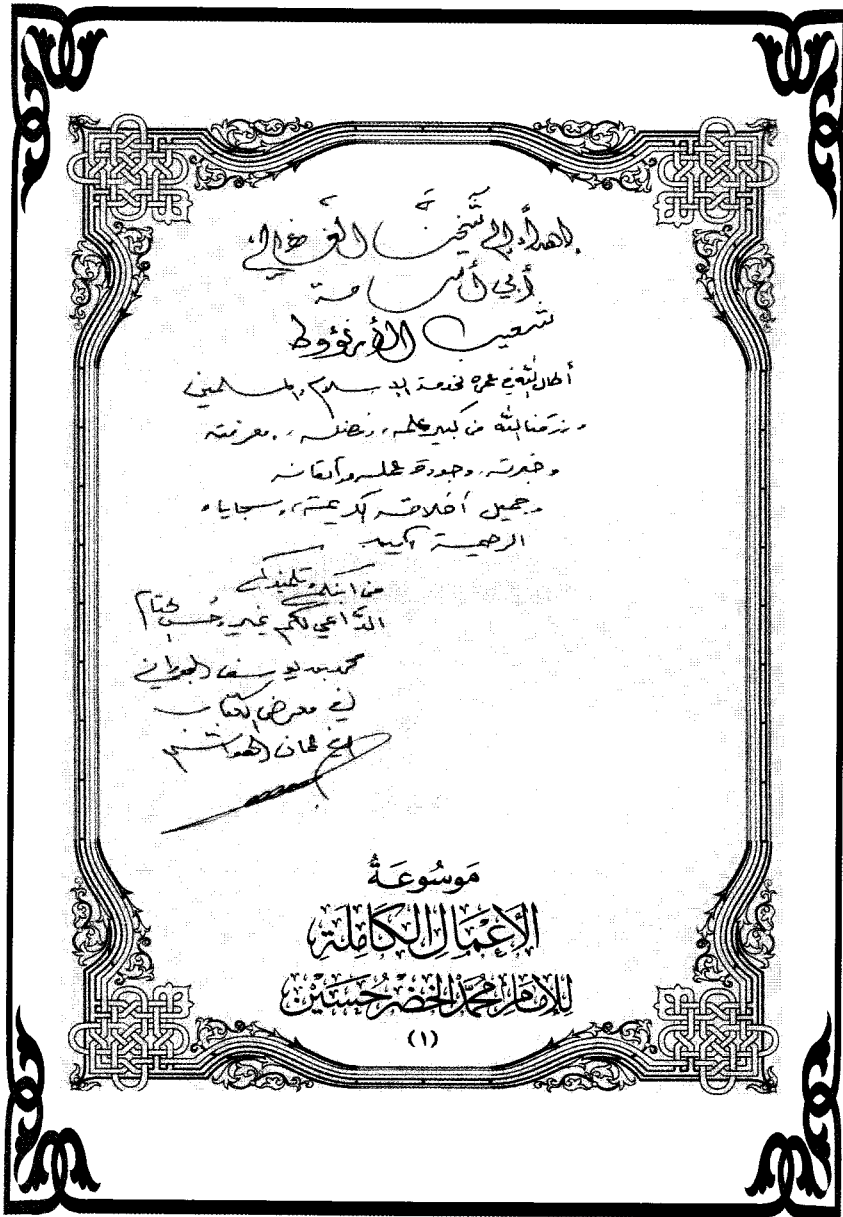 إهداء إلى شيخنا الغالي
أبي أسامة
شعيب الأرنؤوط
أطال الله في عمره لخدمة الإسلام والمسلمين
ورزقنا الله من كبير علمه، وفضله، ومعرفته
وخبرته، وجودة عمله وإتقانه
وجميل أخلاقه الكريمة، وسجاياه
من ابنك وتلميذك
الداعي لكم بخير وحسن ختام
محمد بن يوسف
في معرض الكتاب
مَوسُوعَةُ
الأَعْمَالِ الكَامِلَةِ
لِلإِمَامِ مُحَمَّد الخَضِر حُسَيْن
(١)